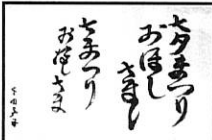 七夕まつり
おほし
さま
七夕まつり
おほしさま